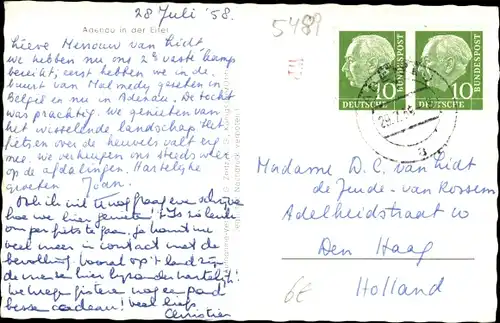 28 Juli '58.
Adenau in der Eifel
5489
Lieve Mevrouw van Lidt
we hebben nu ons 2e vaste kamp
bereikt, eerst hebben we in de
buurt van Malmedy gezeten in
België en nu in Adenau. De tocht
was prachtig. We genieten van
het wisselende landschap. Het
fietsen over de heuvels valt erg
mee. We verheugen ons steeds weer
op de afdalingen. Hartelijke
groeten Joan.
Ook ik wil U nog graag even schrijven
hoe we hier genieten! 't Is zo leuk
om per fiets te gaan. Je komt nu
veel meer in contact met de
bevolking. Vooral op 't land zijn
de mensen hier bijzonder hartelijk!
We kregen gisteren nog een pond
besse cadeau! Veel liefs
Christien
10 DEUTSCHE BUNDESPOST
10 DEUTSCHE BUNDESPOST
29.7.58
a
Madame D. C. van Lidt
de Jeude-van Rossem
Adelheidstraat 10
Den Haag
Holland
6E